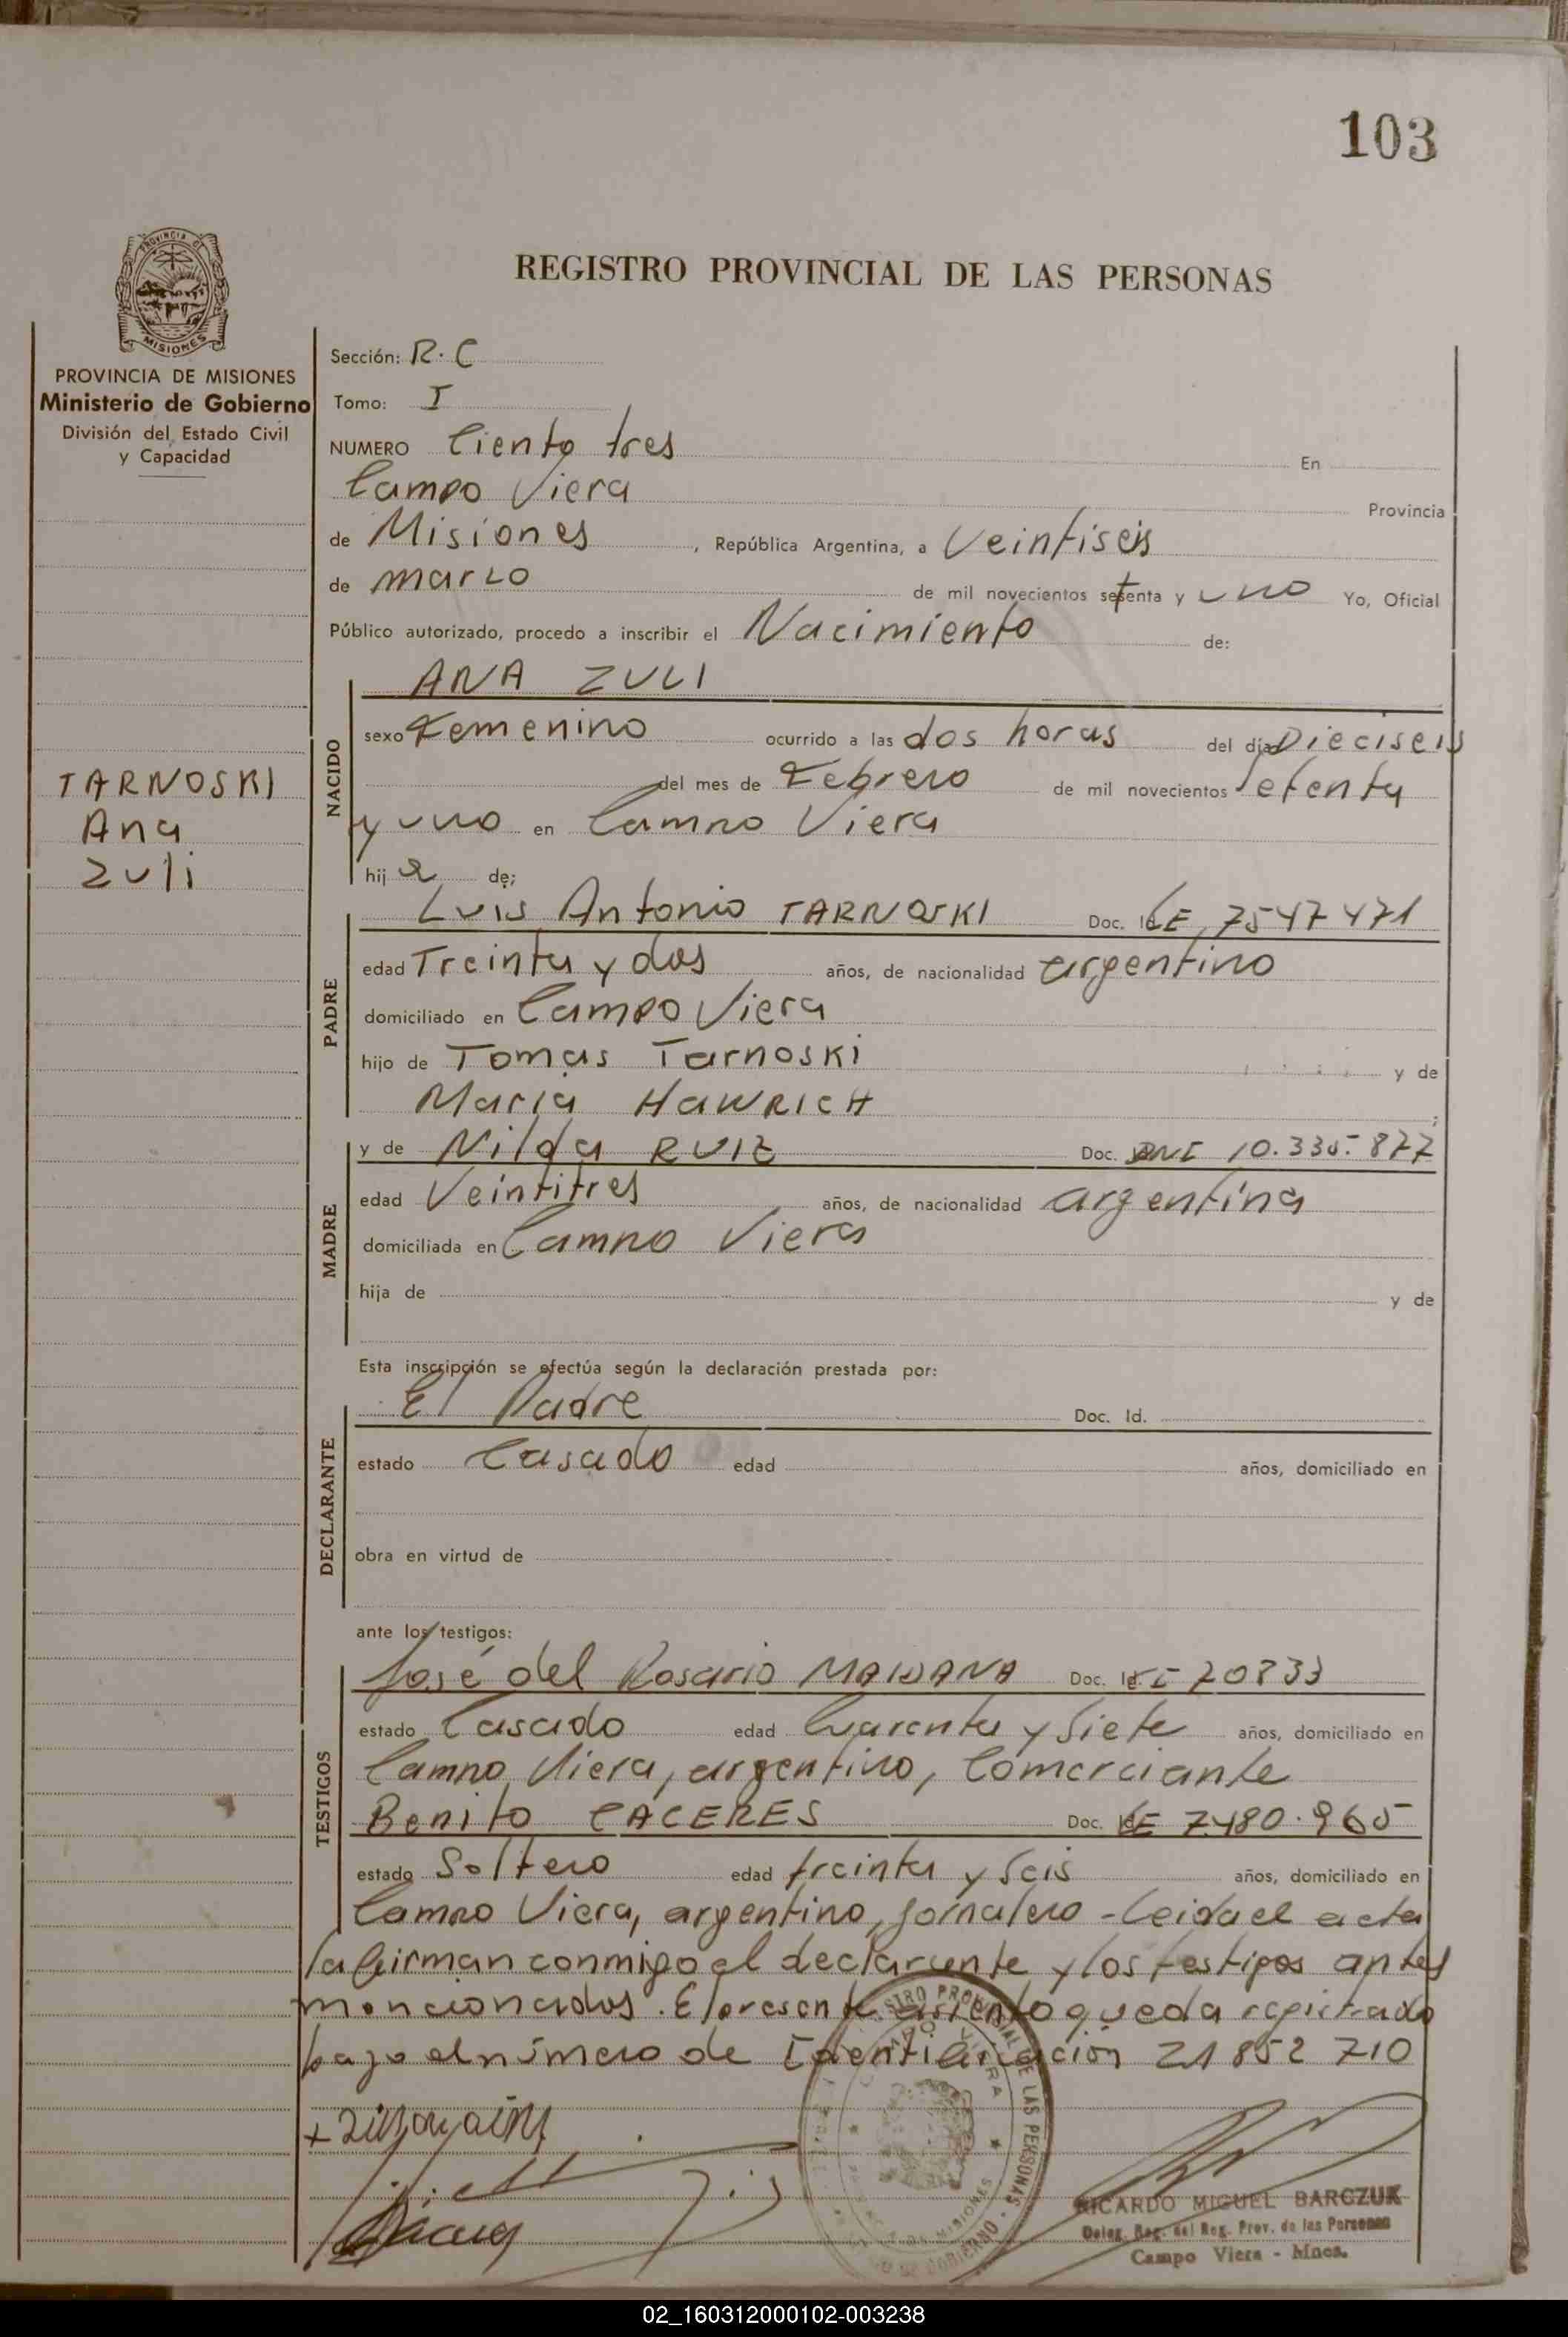 103
PROVINCIA DE
MISIONES
REGISTRO PROVINCIAL DE LAS PERSONAS
PROVINCIA DE MISIONES
Ministerio de Gobierno
División del Estado Civil
y Capacidad
TARNOSKI
Ana
Zuli
Sección: R.C
Tomo: I
NUMERO Ciento tres En
Campo Viera Provincia
de Misiones, República Argentina, a Veintiseis
de marzo de mil novecientos setenta y uno Yo, Oficial
Público autorizado, procedo a inscribir el Nacimiento de:
ANA ZULI
NACIDO
sexo Femenino ocurrido a las dos horas del día Dieciseis
del mes de Febrero de mil novecientos setenta
y uno en Campo Viera
hija de;
PADRE
Luis Antonio TARNOSKI Doc. Id. LE 7547471
edad Treinta y dos años, de nacionalidad argentino
domiciliado en Campo Viera
hijo de Tomas Tarnoski y de
Maria HAWRICH;
MADRE
y de Nilda RUIZ Doc. DNI 10.335.877
edad Veintitres años, de nacionalidad argentina
domiciliada en Campo Viera
hija de y de
Esta inscripción se efectúa según la declaración prestada por:
DECLARANTE
El Padre Doc. Id.
estado Casado edad años, domiciliado en
obra en virtud de
ante los testigos:
TESTIGOS
José del Rosario MAIDANA Doc. Id. 70833
estado Casado edad Cuarenta y Siete años, domiciliado en
Campo Viera, argentino, Comerciante
Benito CACERES Doc. Id. LE 7480.965
estado Soltero edad treinta y seis años, domiciliado en
Campo Viera, argentino, jornalero - Leida el acta
la firman conmigo el declarante y los testigos antes
mencionados. El presente asiento queda registrado
bajo el número de Identificación 21852 710
RICARDO MIGUEL BARCZUK
Deleg. Reg. del Reg. Prov. de las Personas
Campo Viera - Mnes.
02_160312000102-003238